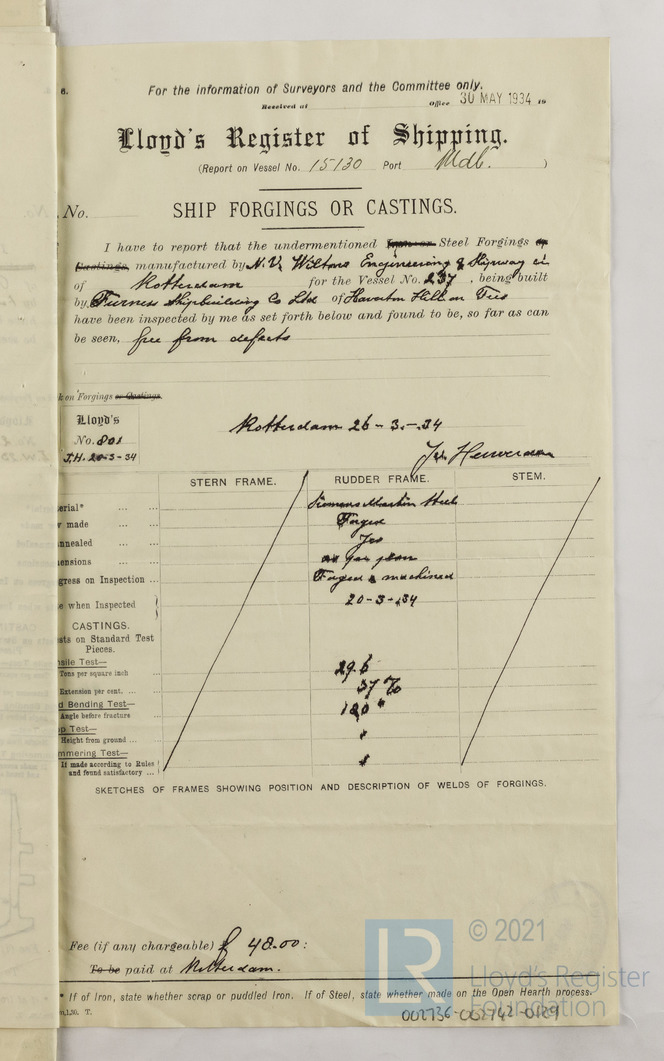 6.
For the information of Surveyors and the Committee only.
Received at Office 30 MAY 1934 19
Lloyd's Register of Shipping.
(Report on Vessel No. 15130 Port Mdb. )
No. SHIP FORGINGS OR CASTINGS.
I have to report that the undermentioned Iron or Steel Forgings or
Castings, manufactured by N.V. Wiltons Engineering & Slipway
of Rotterdam for the Vessel No. 237, being built
by Furness Shipbuilding Co Ltd of Haverton Hill on Tees
have been inspected by me as set forth below and found to be, so far as can
be seen, free from defects
k on Forgings or Castings.
Lloyd's
No. 801
J.H. 20-3-34
Rotterdam 26-3-34
STERN FRAME. RUDDER FRAME. STEM.
erial* ... ... Siemens Martin Steel
w made ... ... Forged
nnealed ... ... Yes
ensions ... ... as per plan
gress on Inspection ... Forged & machined
e when Inspected 20-3-34
CASTINGS.
sts on Standard Test
Pieces.
sile Test—
Tons per square inch 29.6
Extension per cent. ... ... 37 %
d Bending Test—
Angle before fracture 180 °
op Test—
Height from ground ... ...
mmering Test—
If made according to Rules
and found satisfactory ...
SKETCHES OF FRAMES SHOWING POSITION AND DESCRIPTION OF WELDS OF FORGINGS.
Fee (if any chargeable) f 48.00 :
To be paid at Rotterdam.
* If of Iron, state whether scrap or puddled Iron. If of Steel, state whether made on the Open Hearth process.
m,1,30. T.
002736-002742-0129
LR
© 2021
Lloyd's Register
Foundation